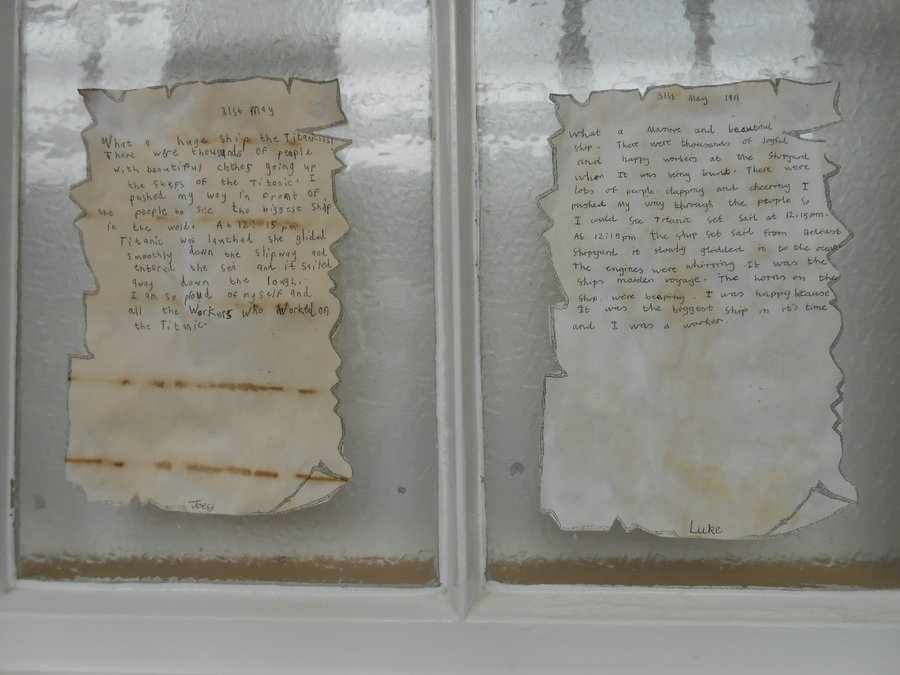 31st May
What a huge ship the Titanic is!
There were thousands of people
with beautiful clothes going up
the steps of the Titanic. I
pushed my way in front of
the people to see the biggest ship
in the world. At 12:15 pm
Titanic was lauched she glided
smoothly down the slipway and
entered the sea and it sailed
away down the lough.
I am so proud of myself and
all the Workers who Worked on
the Titanic.
Joey
31st May 1911
What a Massive and beautiful
ship. There were thousands of Joyful
and happy workers at the Shipyard
when It was being built. There were
lots of people clapping and cheering I
pushed My way through the people So
I could See Titanic Set Sail at 12.15pm.
At 12:15pm the ship set Sail from Belfast
Shipyard it slowly glidded in to the ocean
The engines were whirring. It was the
ships maiden voyage. The horns on the
Ship were beeping. I was happy because
It was the biggest Ship in it's time
and I was a worker.
Luke